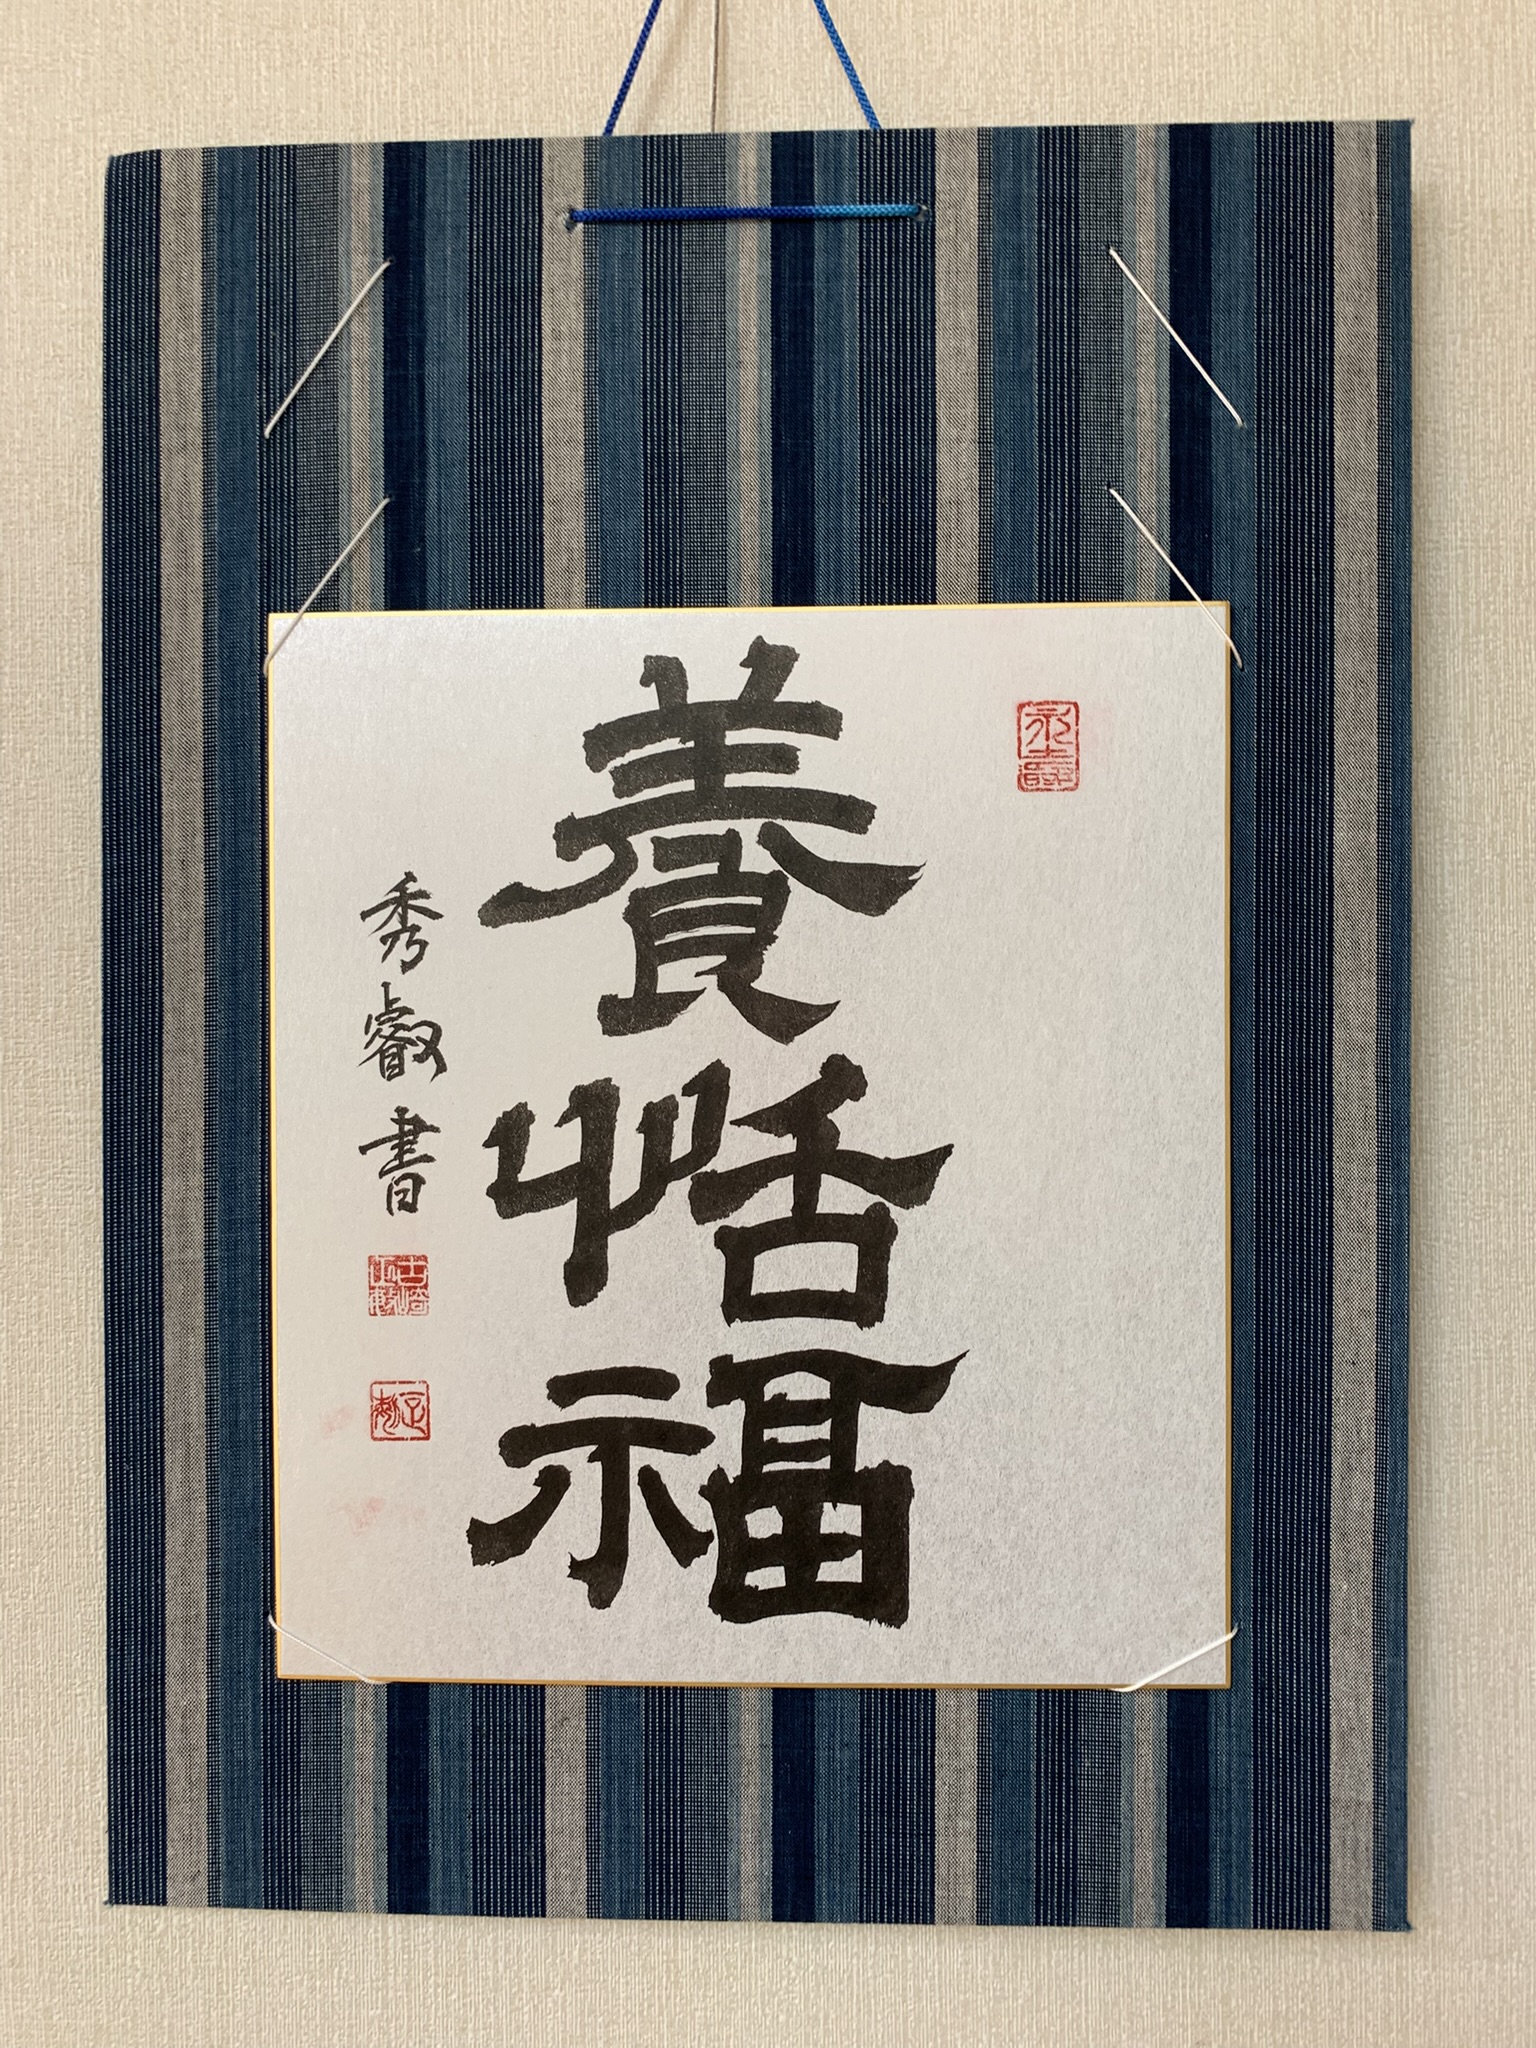 養恬福
秀叡書